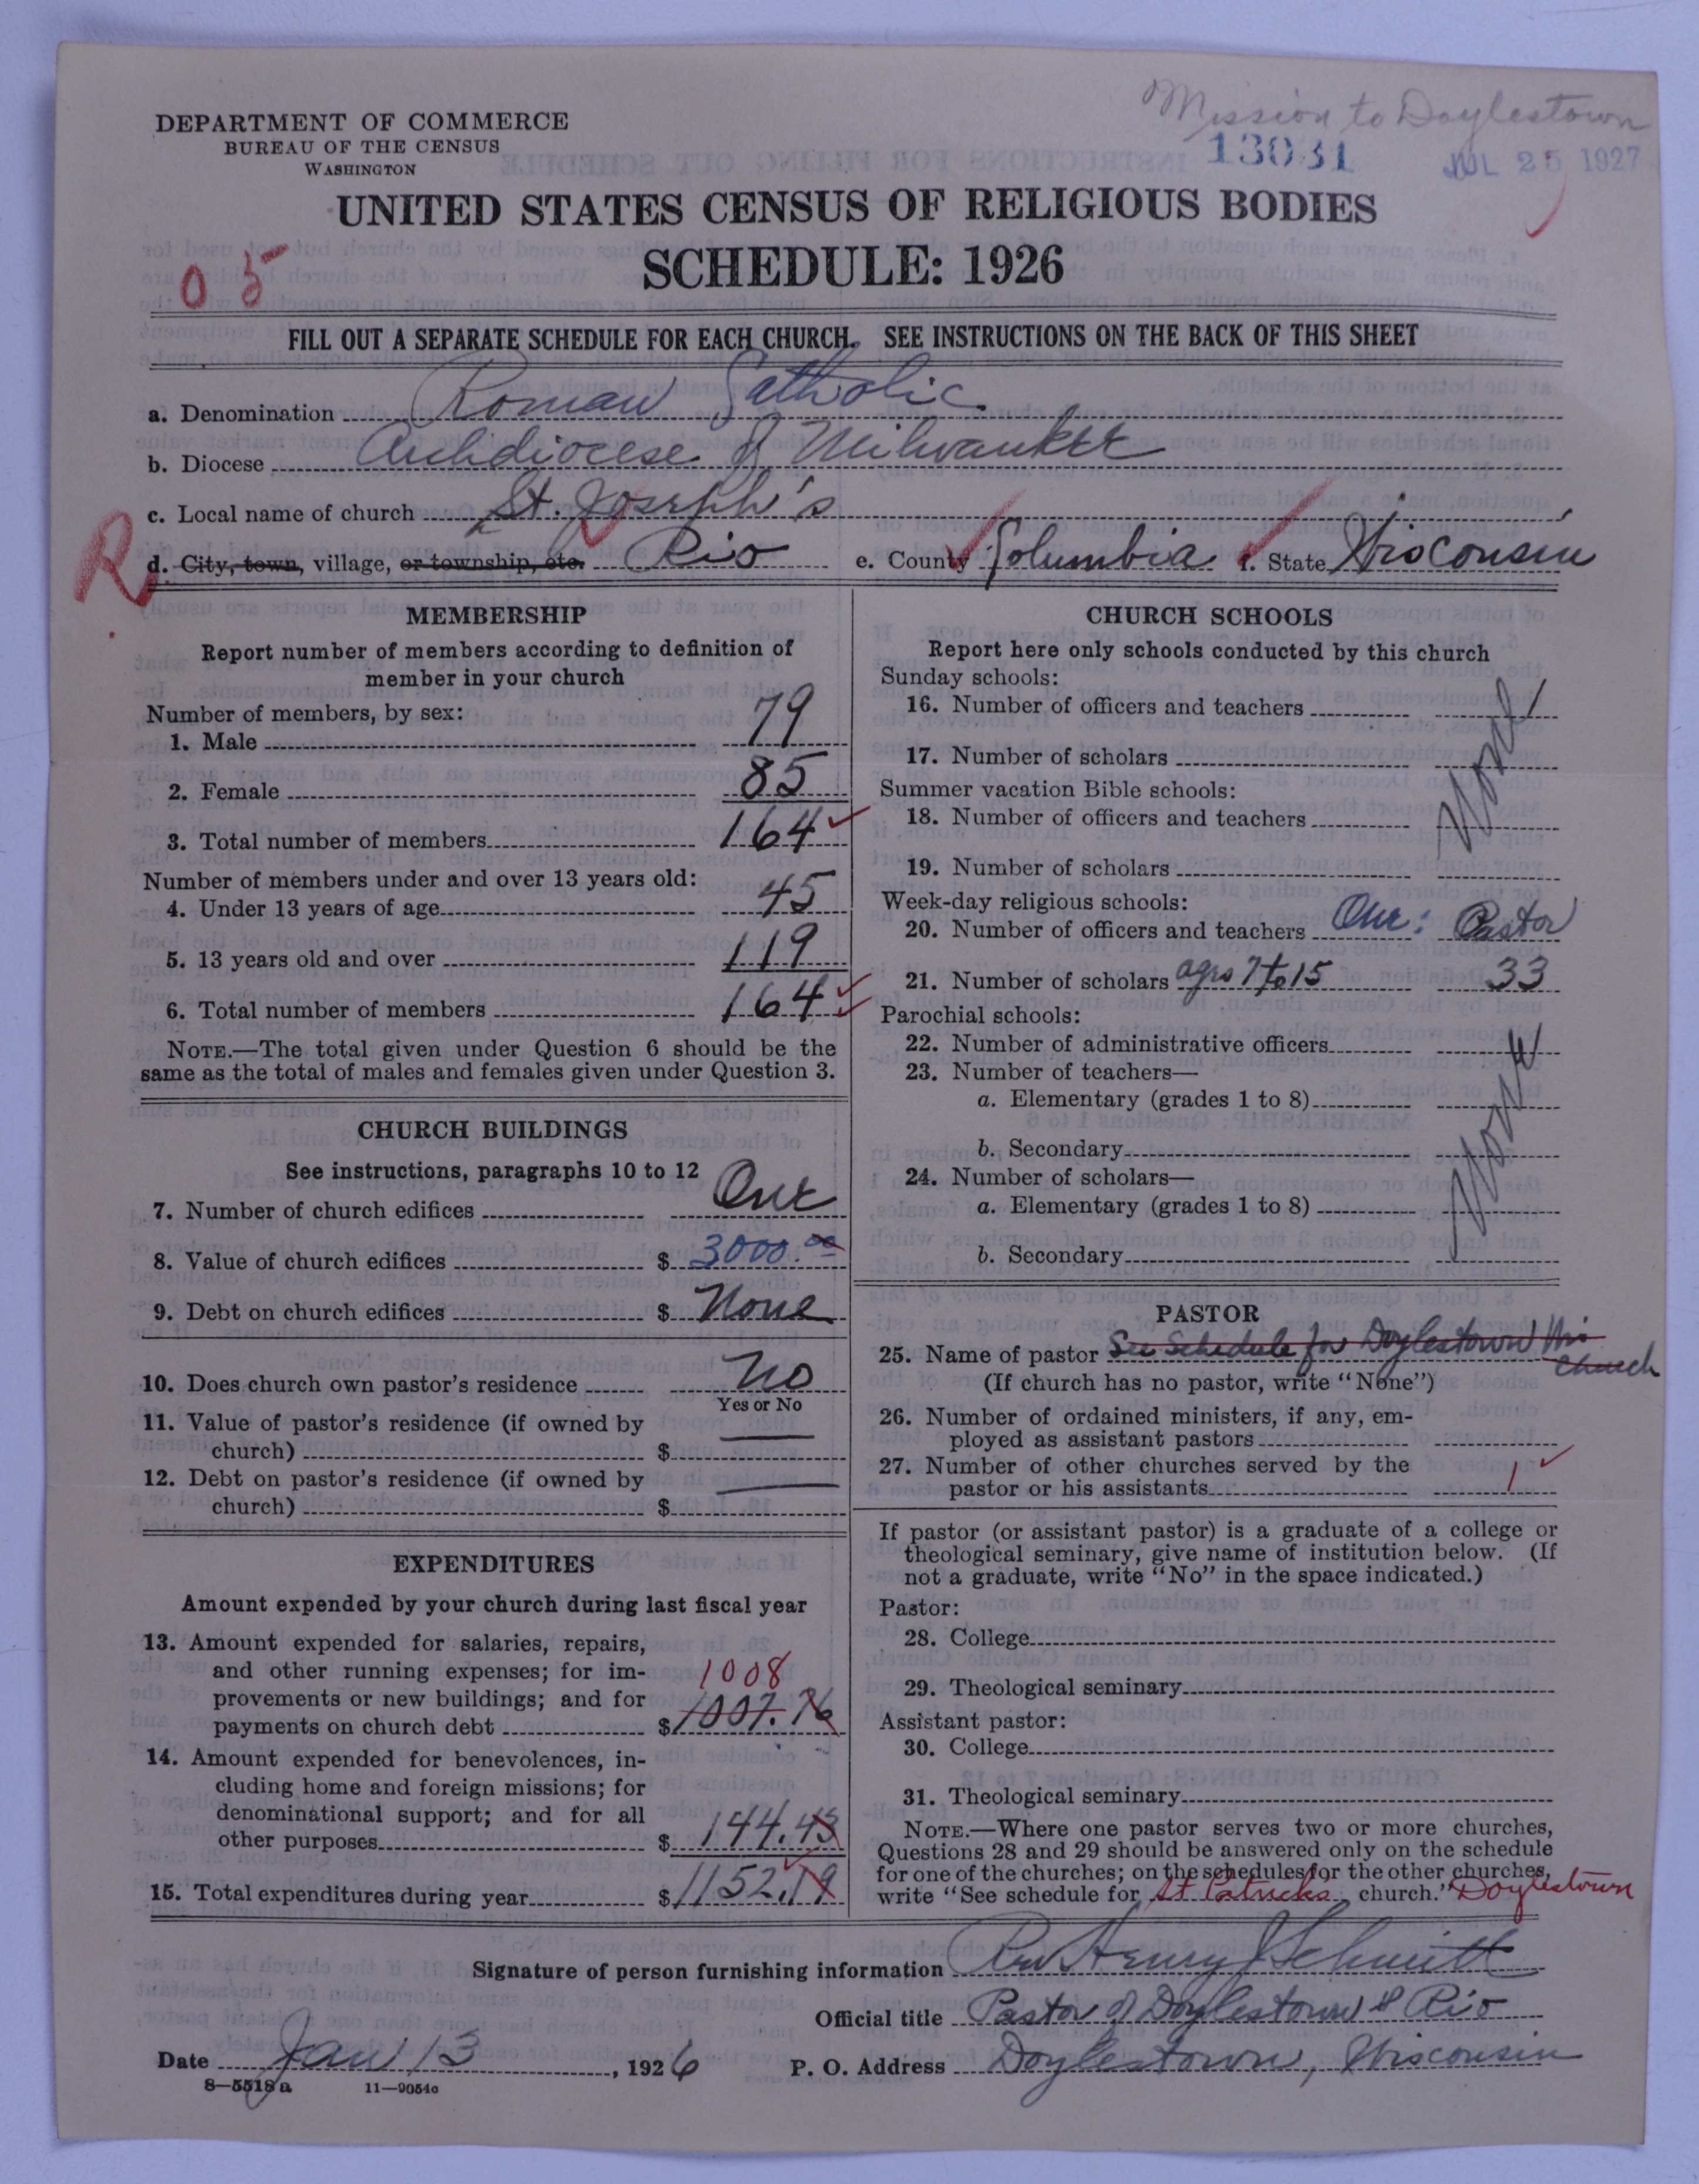 Mission to Doylestown
DEPARTMENT OF COMMERCE
BUREAU OF THE CENSUS
WASHINGTON
13031
JUL 25 1927
UNITED STATES CENSUS OF RELIGIOUS BODIES
SCHEDULE: 1926
05
FILL OUT A SEPARATE SCHEDULE FOR EACH CHURCH. SEE INSTRUCTIONS ON THE BACK OF THIS SHEET
a. Denomination Roman Catholic
b. Diocese Archdiocese of Milwaukee
c. Local name of church St. Joseph's
R
d. City, town, village, or township, etc. Rio e. County Columbia f. State Wisconsin
MEMBERSHIP
Report number of members according to definition of
member in your church
Number of members, by sex:
1. Male 79
2. Female 85
3. Total number of members 164
Number of members under and over 13 years old:
4. Under 13 years of age 45
5. 13 years old and over 119
6. Total number of members 164
NOTE.—The total given under Question 6 should be the
same as the total of males and females given under Question 3.
CHURCH BUILDINGS
See instructions, paragraphs 10 to 12
7. Number of church edifices One
8. Value of church edifices $ 3000.00
9. Debt on church edifices $ None
10. Does church own pastor's residence No
Yes or No
11. Value of pastor's residence (if owned by
church) $
12. Debt on pastor's residence (if owned by
church) $
EXPENDITURES
Amount expended by your church during last fiscal year
13. Amount expended for salaries, repairs,
and other running expenses; for im-
1008
provements or new buildings; and for
payments on church debt $ 1007.76
14. Amount expended for benevolences, in-
cluding home and foreign missions; for
denominational support; and for all
other purposes $ 144.43
15. Total expenditures during year $ 1152.19
CHURCH SCHOOLS
Report here only schools conducted by this church
Sunday schools:
16. Number of officers and teachers
17. Number of scholars
None
Summer vacation Bible schools:
18. Number of officers and teachers
19. Number of scholars
Week-day religious schools:
20. Number of officers and teachers One: Pastor
21. Number of scholars ages 7 to 15 33
Parochial schools:
22. Number of administrative officers
23. Number of teachers—
a. Elementary (grades 1 to 8)
None
b. Secondary
24. Number of scholars—
a. Elementary (grades 1 to 8)
b. Secondary
PASTOR
25. Name of pastor See Schedule for Doylestown Wis
Church
(If church has no pastor, write "None")
26. Number of ordained ministers, if any, em-
ployed as assistant pastors
27. Number of other churches served by the
pastor or his assistants 1
If pastor (or assistant pastor) is a graduate of a college or
theological seminary, give name of institution below. (If
not a graduate, write "No" in the space indicated.)
Pastor:
28. College
29. Theological seminary
Assistant pastor:
30. College
31. Theological seminary
NOTE.—Where one pastor serves two or more churches,
Questions 28 and 29 should be answered only on the schedule
for one of the churches; on the schedules for the other churches,
write "See schedule for St Patrick's church." Doylestown
Signature of person furnishing information Rev Henry J Schmitt
Official title Pastor of Doylestown & Rio
Date Jan 13, 1926 P. O. Address Doylestown, Wisconsin
8—5518a 11—9054c